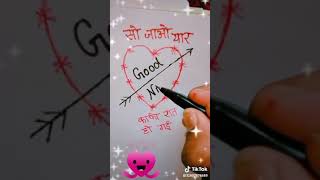 सो जाओ यार
Good
काफी रात
हो गई
TikTok